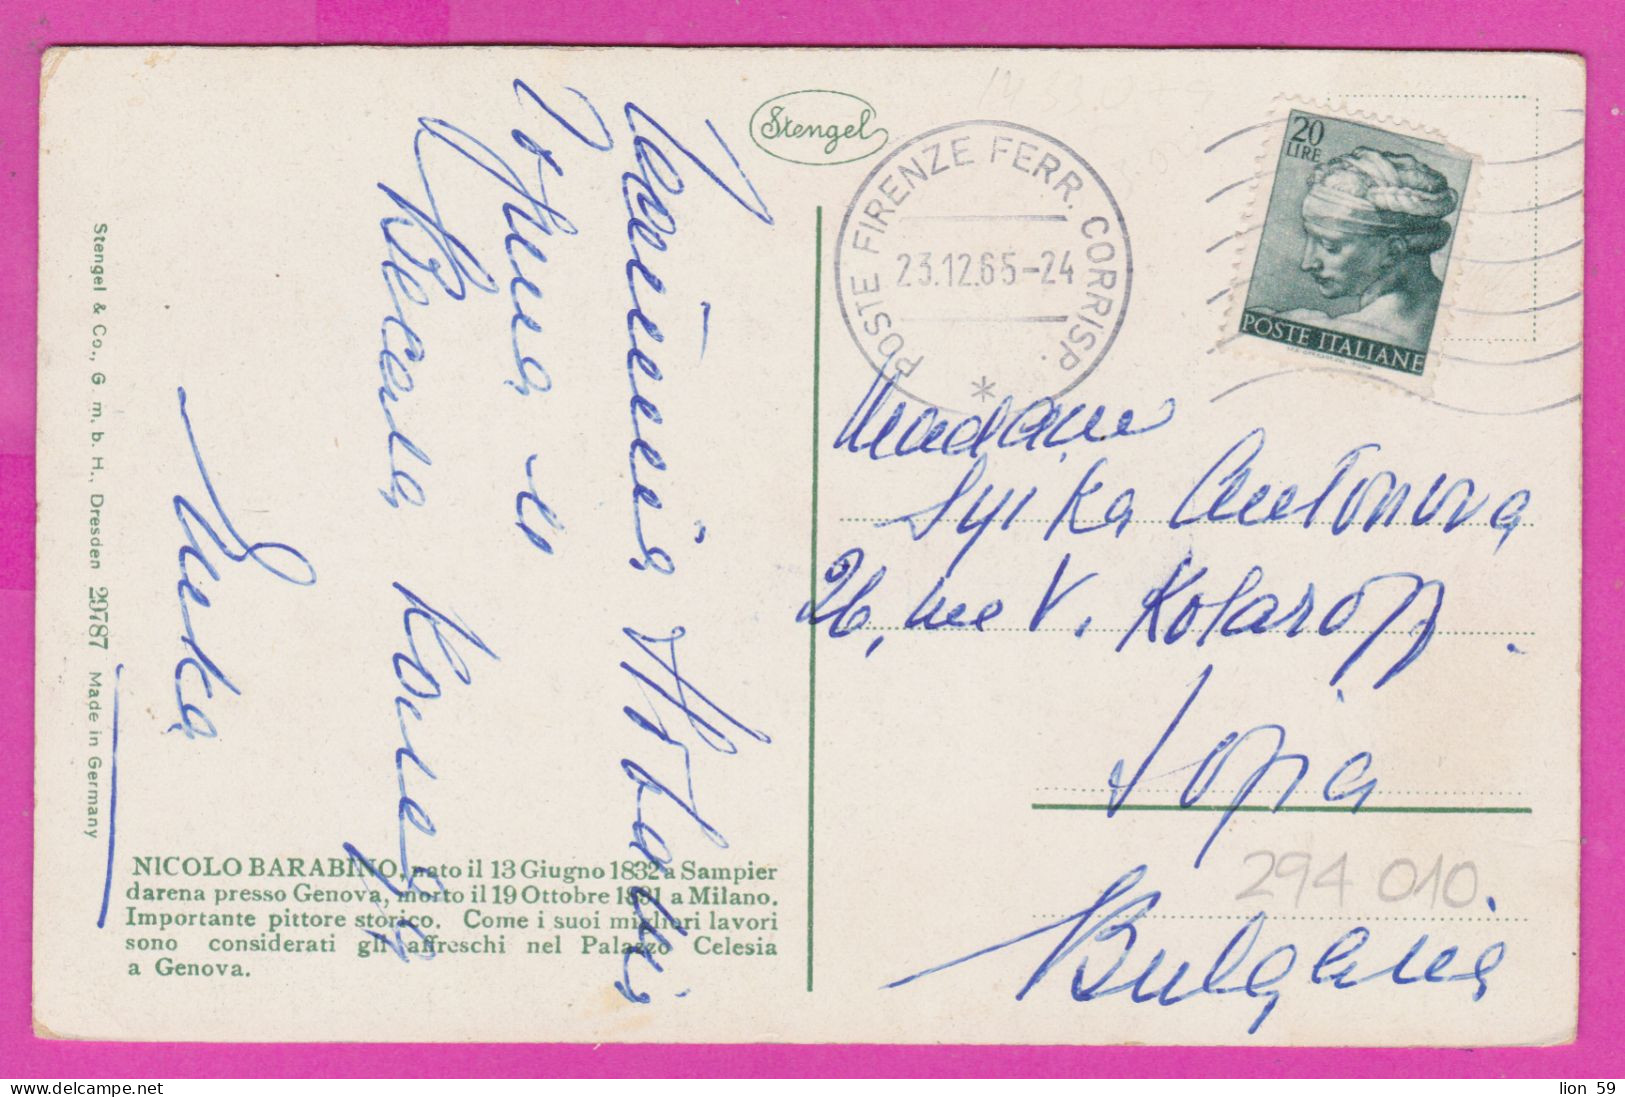 Stengel
POSTE FIRENZE FERR. CORRISP.
23.12.65-24
20
LIRE
POSTE ITALIANE
Честита Нова
година и
Весела Коледа
Madame
Antonova
26, rue V. Kolaroff
Sofia
Bulgaria
294 010.
NICOLO BARABINO, nato il 13 Giugno 1832 a Sampier
darena presso Genova, morto il 19 Ottobre 1891 a Milano.
Importante pittore storico. Come i suoi migliori lavori
sono considerati gli affreschi nel Palazzo Celesia
a Genova.
Stengel & Co., G. m. b. H., Dresden 29787 Made in Germany
lion 59